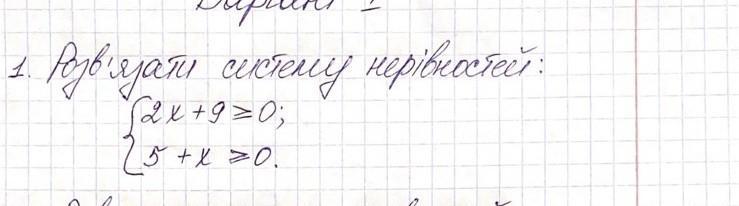 Варіант 1
1. Розв'язати систему нерівностей:
{2x+9≥0;
5+x≥0.